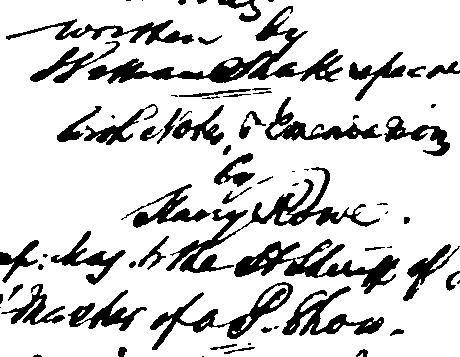 written by
William Shakespeare
with Notes & Emendations
by
Harry Rowe.
to the Sheriff of
Master of a P. Show.